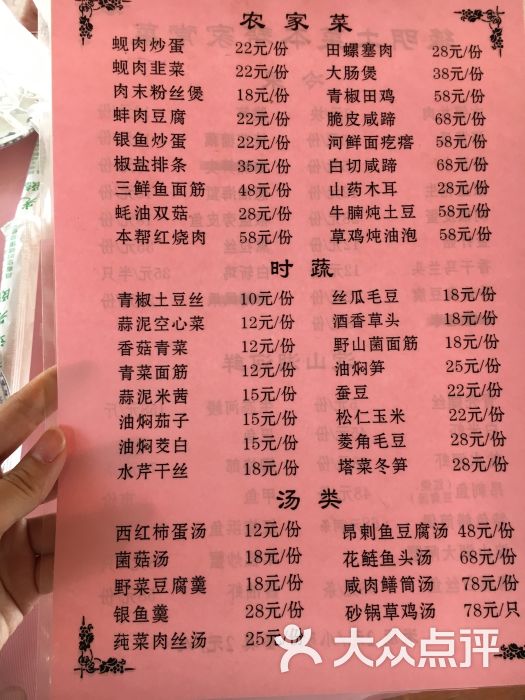 农家菜
蚬肉炒蛋 22元/份 田螺塞肉 28元/份
蚬肉韭菜 22元/份 大肠煲 38元/份
肉末粉丝煲 18元/份 青椒田鸡 58元/份
蚌肉豆腐 22元/份 脆皮咸蹄 68元/份
银鱼炒蛋 22元/份 河鲜面疙瘩 58元/份
椒盐排条 35元/份 白切咸蹄 58元/份
三鲜鱼面筋 48元/份 山药木耳 28元/份
蚝油双菇 28元/份 牛腩炖土豆 58元/份
本帮红烧肉 58元/份 草鸡炖油泡 58元/份
时蔬
青椒土豆丝 10元/份 丝瓜毛豆 18元/份
蒜泥空心菜 12元/份 酒香草头 18元/份
香菇青菜 12元/份 野山菌面筋 18元/份
青菜面筋 12元/份 油焖笋 25元/份
蒜泥米茜 15元/份 蚕豆 22元/份
油焖茄子 15元/份 松仁玉米 22元/份
油焖茭白 15元/份 菱角毛豆 28元/份
水芹干丝 18元/份 塔菜冬笋 28元/份
汤类
西红柿蛋汤 12元/份 昂刺鱼豆腐汤 48元/份
菌菇汤 18元/份 花鲢鱼头汤 68元/份
野菜豆腐羹 18元/份 咸肉鳝筒汤 78元/份
银鱼羹 28元/份 砂锅草鸡汤 78元/只
莼菜肉丝汤 25元/份
大众点评